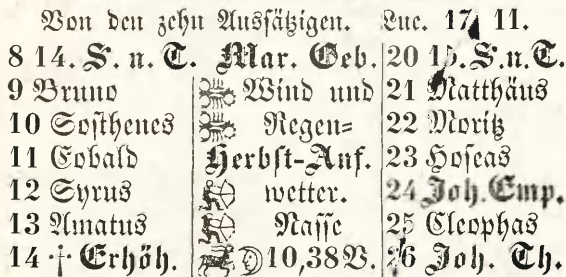 Von den zehn Aussätzigen. Luc. 17, 11.
8 14. S. n. T. Mar. Geb. 20 15. S. n. T.
9 Bruno Wind und 21 Matthäus
10 Sosthenes Regen= 22 Moritz
11 Cobald Herbst-Anf. 23 Hoseas
12 Syrus wetter. 24 Joh. Emp.
13 Amatus Nasse 25 Cleophas
14 † Erhöh. 10,38 V. 26 Joh. Th.